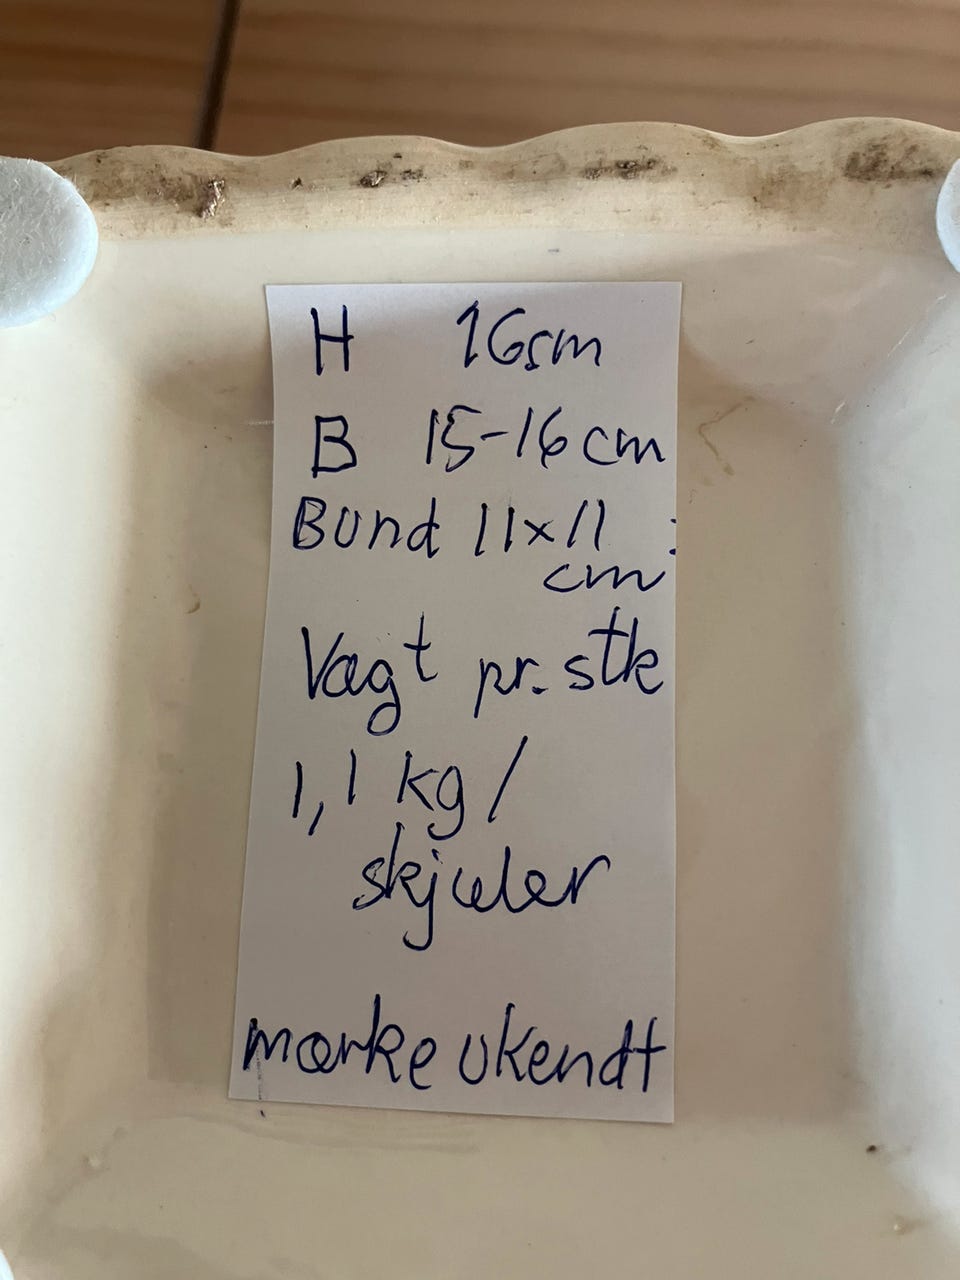 H 16cm
B 15-16 cm
Bund 11x11
cm
Vægt pr. stk
1,1 kg /
skjuler
mærke ukendt